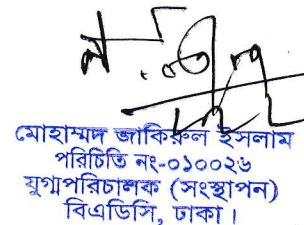 মোহাম্মদ জাকিরুল ইসলাম
পরিচিতি নং-০১০০২৬
যুগ্মপরিচালক (সংস্থাপন)
বিএডিসি, ঢাকা।